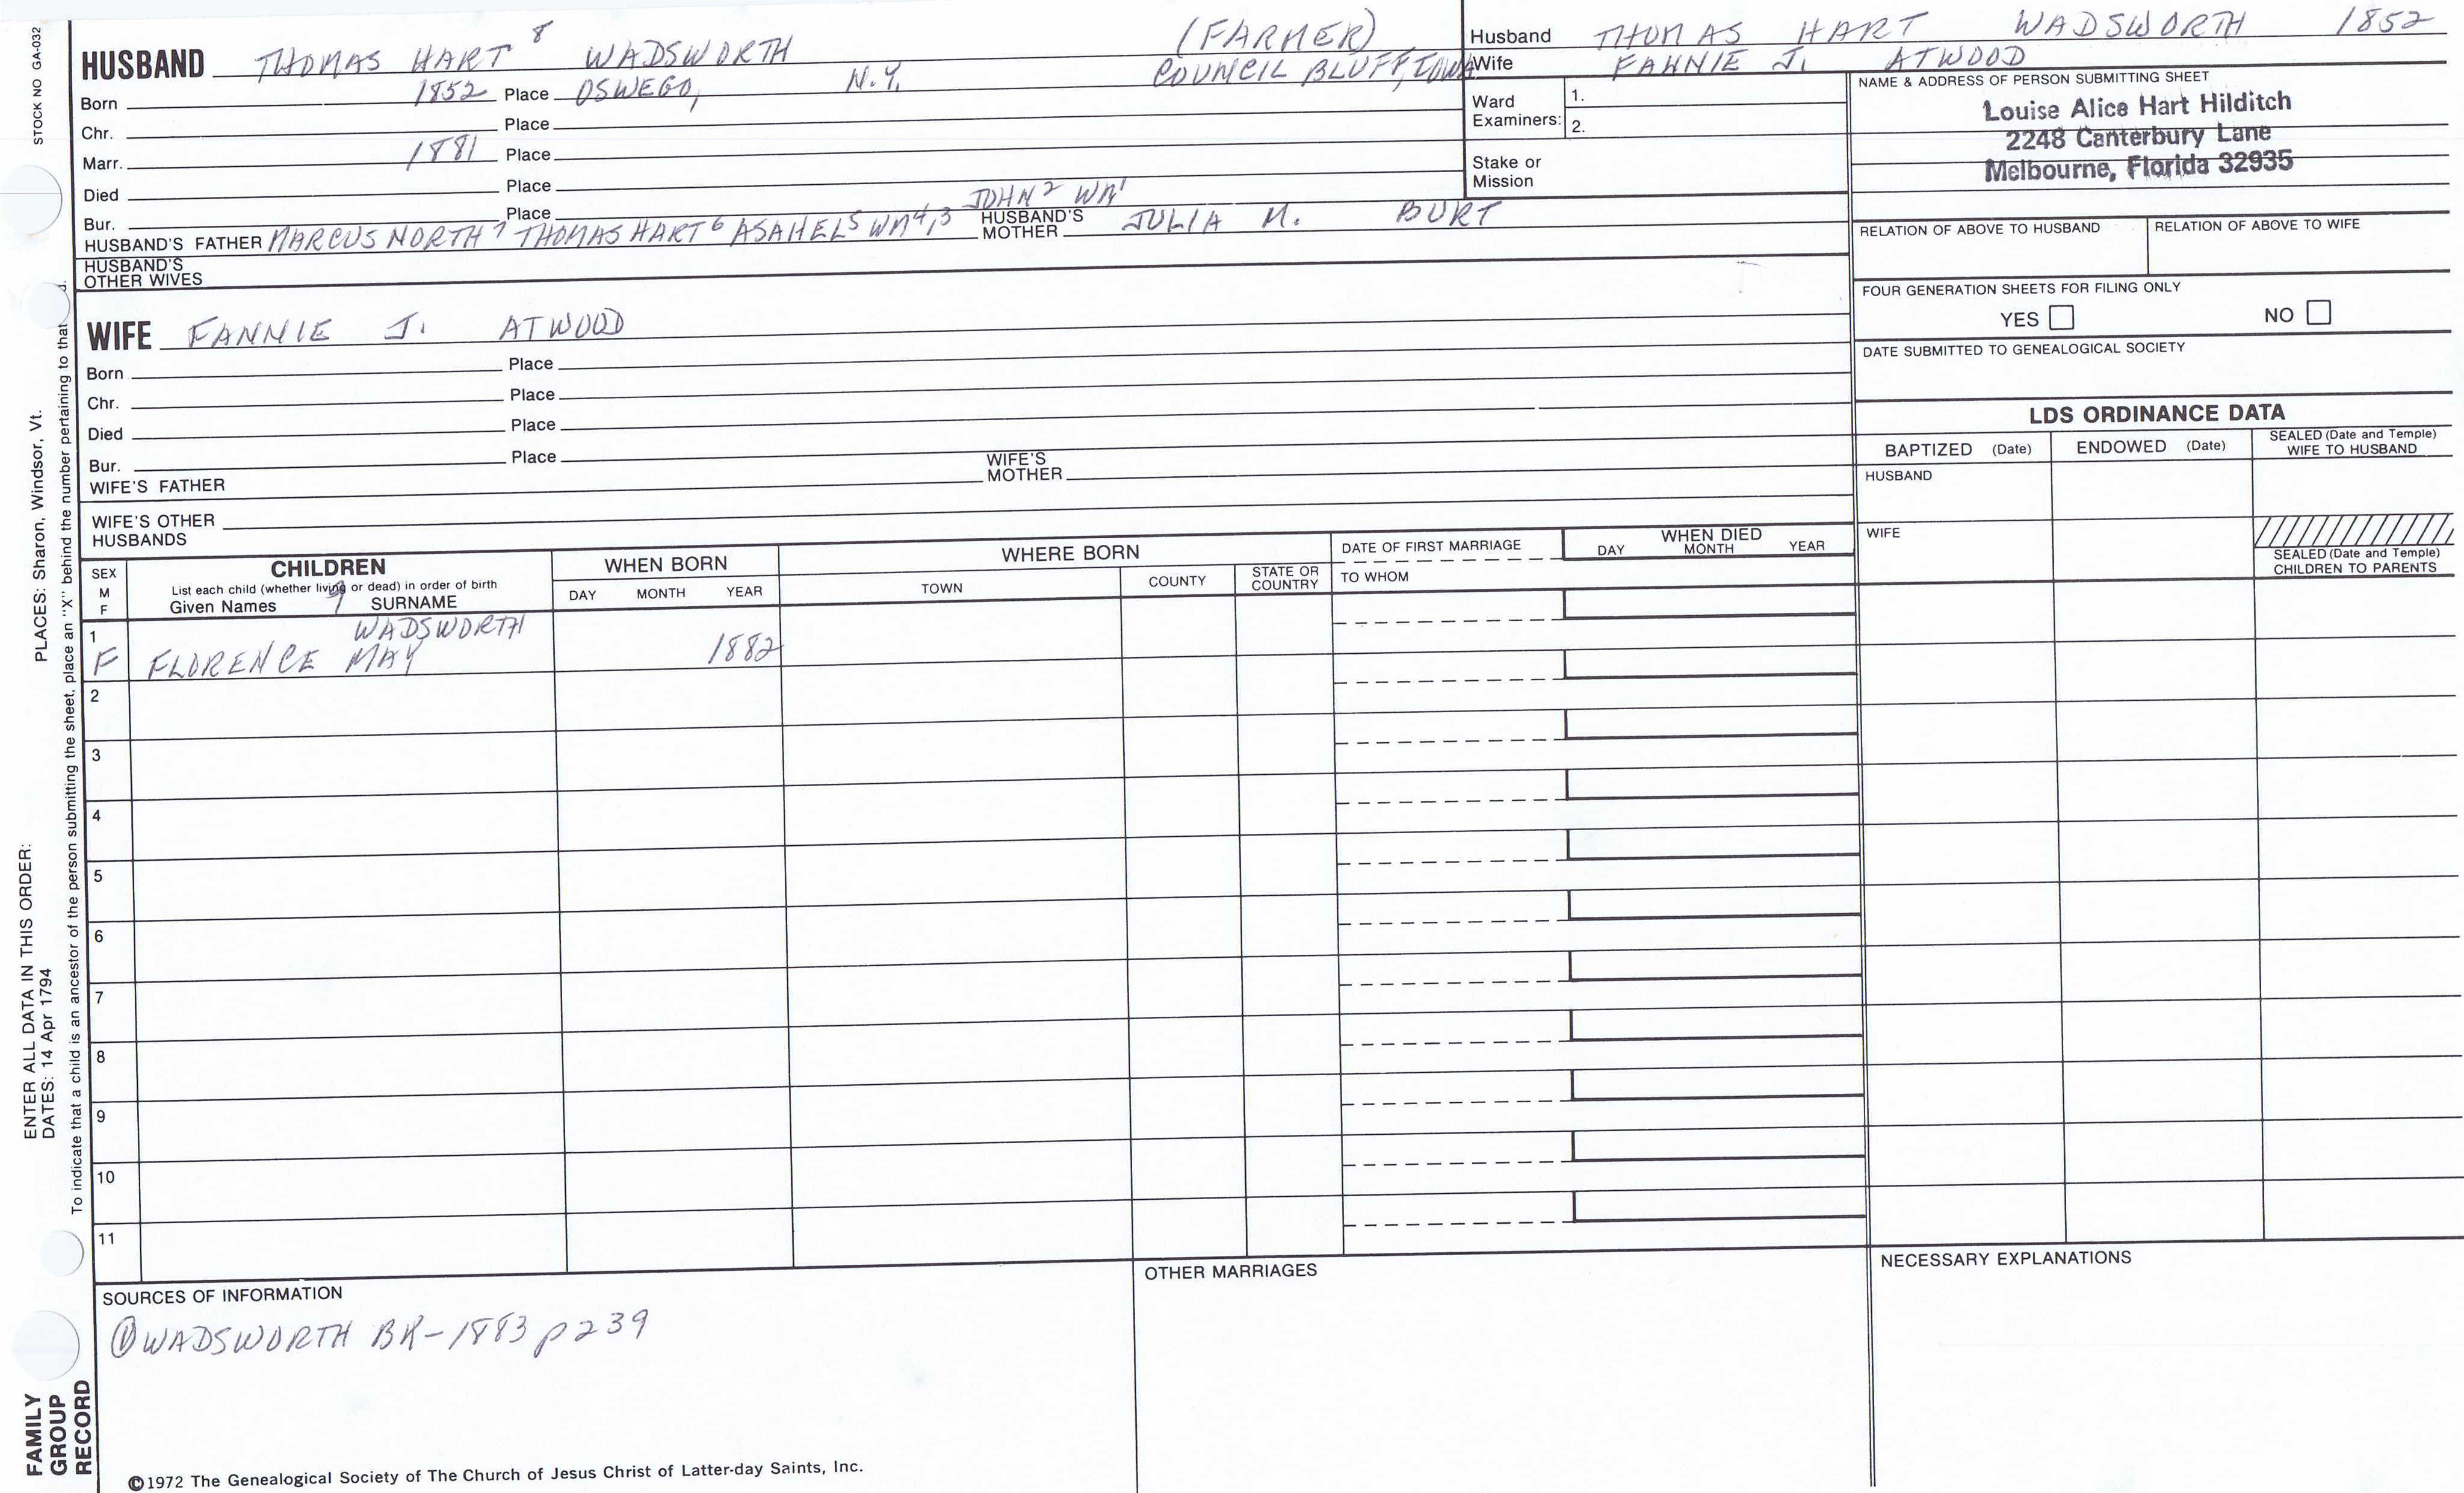 STOCK NO GA-032
HUSBAND THOMAS HART 8 WADSWORTH (FARMER)
COUNCIL BLUFF, IOWA
Born 1852 Place OSWEGO, N.Y.
Chr. Place
Marr. 1881 Place
Died Place
Bur. Place
JOHN 2 WM 1
HUSBAND'S FATHER MARCUS NORTH 7 THOMAS HART 6 ASAHEL 5 WM 4,3 HUSBAND'S MOTHER JULIA M. BURT
HUSBAND'S
OTHER WIVES
Husband THOMAS HART WADSWORTH 1852
Wife FANNIE J. ATWOOD
Ward
Examiners:
1.
2.
Stake or
Mission
NAME & ADDRESS OF PERSON SUBMITTING SHEET
Louise Alice Hart Hilditch
2248 Canterbury Lane
Melbourne, Florida 32935
RELATION OF ABOVE TO HUSBAND RELATION OF ABOVE TO WIFE
FOUR GENERATION SHEETS FOR FILING ONLY
YES NO
DATE SUBMITTED TO GENEALOGICAL SOCIETY
WIFE FANNIE J. ATWOOD
Born Place
Chr. Place
Died Place
Bur. Place
WIFE'S FATHER WIFE'S MOTHER
WIFE'S OTHER
HUSBANDS
LDS ORDINANCE DATA
BAPTIZED (Date) ENDOWED (Date) SEALED (Date and Temple) WIFE TO HUSBAND
HUSBAND
WIFE
SEALED (Date and Temple)
CHILDREN TO PARENTS
SEX
M
F
CHILDREN
List each child (whether living or dead) in order of birth
Given Names SURNAME
WHEN BORN
DAY MONTH YEAR
WHERE BORN
TOWN COUNTY STATE OR COUNTRY
DATE OF FIRST MARRIAGE
TO WHOM
WHEN DIED
DAY MONTH YEAR
1 WADSWORTH
F FLORENCE MAY 1882
2
3
4
5
6
7
8
9
10
11
SOURCES OF INFORMATION
① WADSWORTH BK - 1883 p 239
OTHER MARRIAGES
NECESSARY EXPLANATIONS
©1972 The Genealogical Society of The Church of Jesus Christ of Latter-day Saints, Inc.
ENTER ALL DATA IN THIS ORDER:
DATES: 14 Apr 1794
PLACES: Sharon, Windsor, Vt.
To indicate that a child is an ancestor of the person submitting the sheet, place an "X" behind the number pertaining to that
FAMILY
GROUP
RECORD